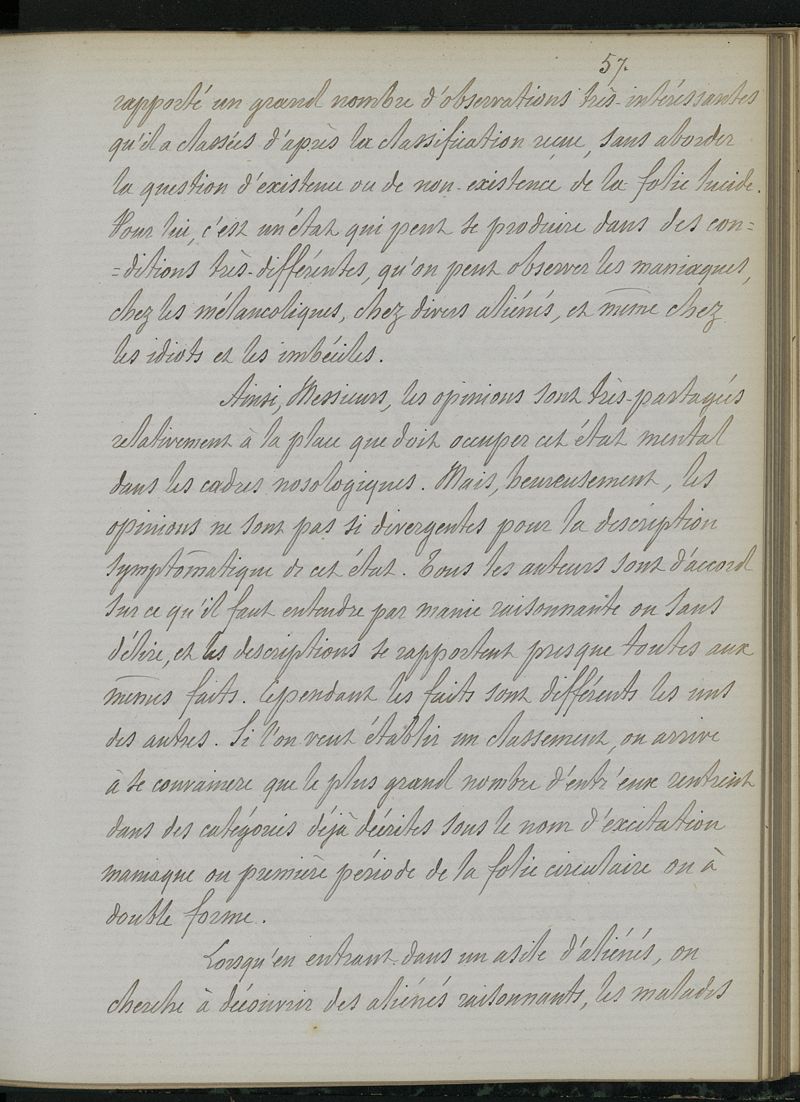 57.
rapporté un grand nombre d'observations très-intéressantes
qu'il a classées d'après la classification reçue, sans aborder
la question d'existence ou de non-existence de la folie lucide.
Pour lui, c'est un état qui peut se produire dans des con=
=ditions très-différentes, qu'on peut observer les maniaques,
chez les mélancoliques, chez divers aliénés, et même chez
les idiots et les imbéciles.
Ainsi, Messieurs, les opinions sont très-partagées
relativement à la place que doit occuper cet état mental
dans les cadres nosologiques. Mais, heureusement, les
opinions ne sont pas si divergentes pour la description
symptômatique de cet état. Tous les auteurs sont d'accord
sur ce qu'il faut entendre par manie raisonnante ou sans
délire, et les descriptions se rapportent presque toutes aux
mêmes faits. Cependant les faits sont différents les uns
des autres. Si l'on veut établir un classement, on arrive
à se convaincre que le plus grand nombre d'entr'eux rentrent
dans des catégories déjà décrites sous le nom d'excitation
maniaque ou première période de la folie circulaire ou à
double forme.
Lorsqu'en entrant dans un asile d'aliénés, on
cherche à découvrir des aliénés raisonnants, les malades